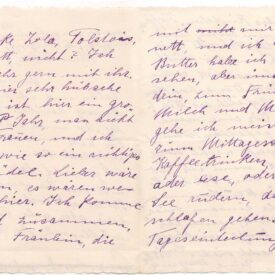 ke Zola, Tolstois,
tt, nicht? Ich
ehr gern mit ihr.
ier sehr hübsche
ist hier ein gro-
Ihr man licht
rauen, und ich
wie so ein richtiges
idel. Lieber wäre
n, es waren we-
hier. Ich komme
t zusammen,
Fräulein, die
mit nicht nur
nett, und ich
Butter habe ich
sehen, aber
dein, zum Frü
Milch und M
gehe ich mei
zum Mittagess
Kaffeetrinken,
oder lese, oder
See rudern, da
schlafen gehen.
Tageseinteilung